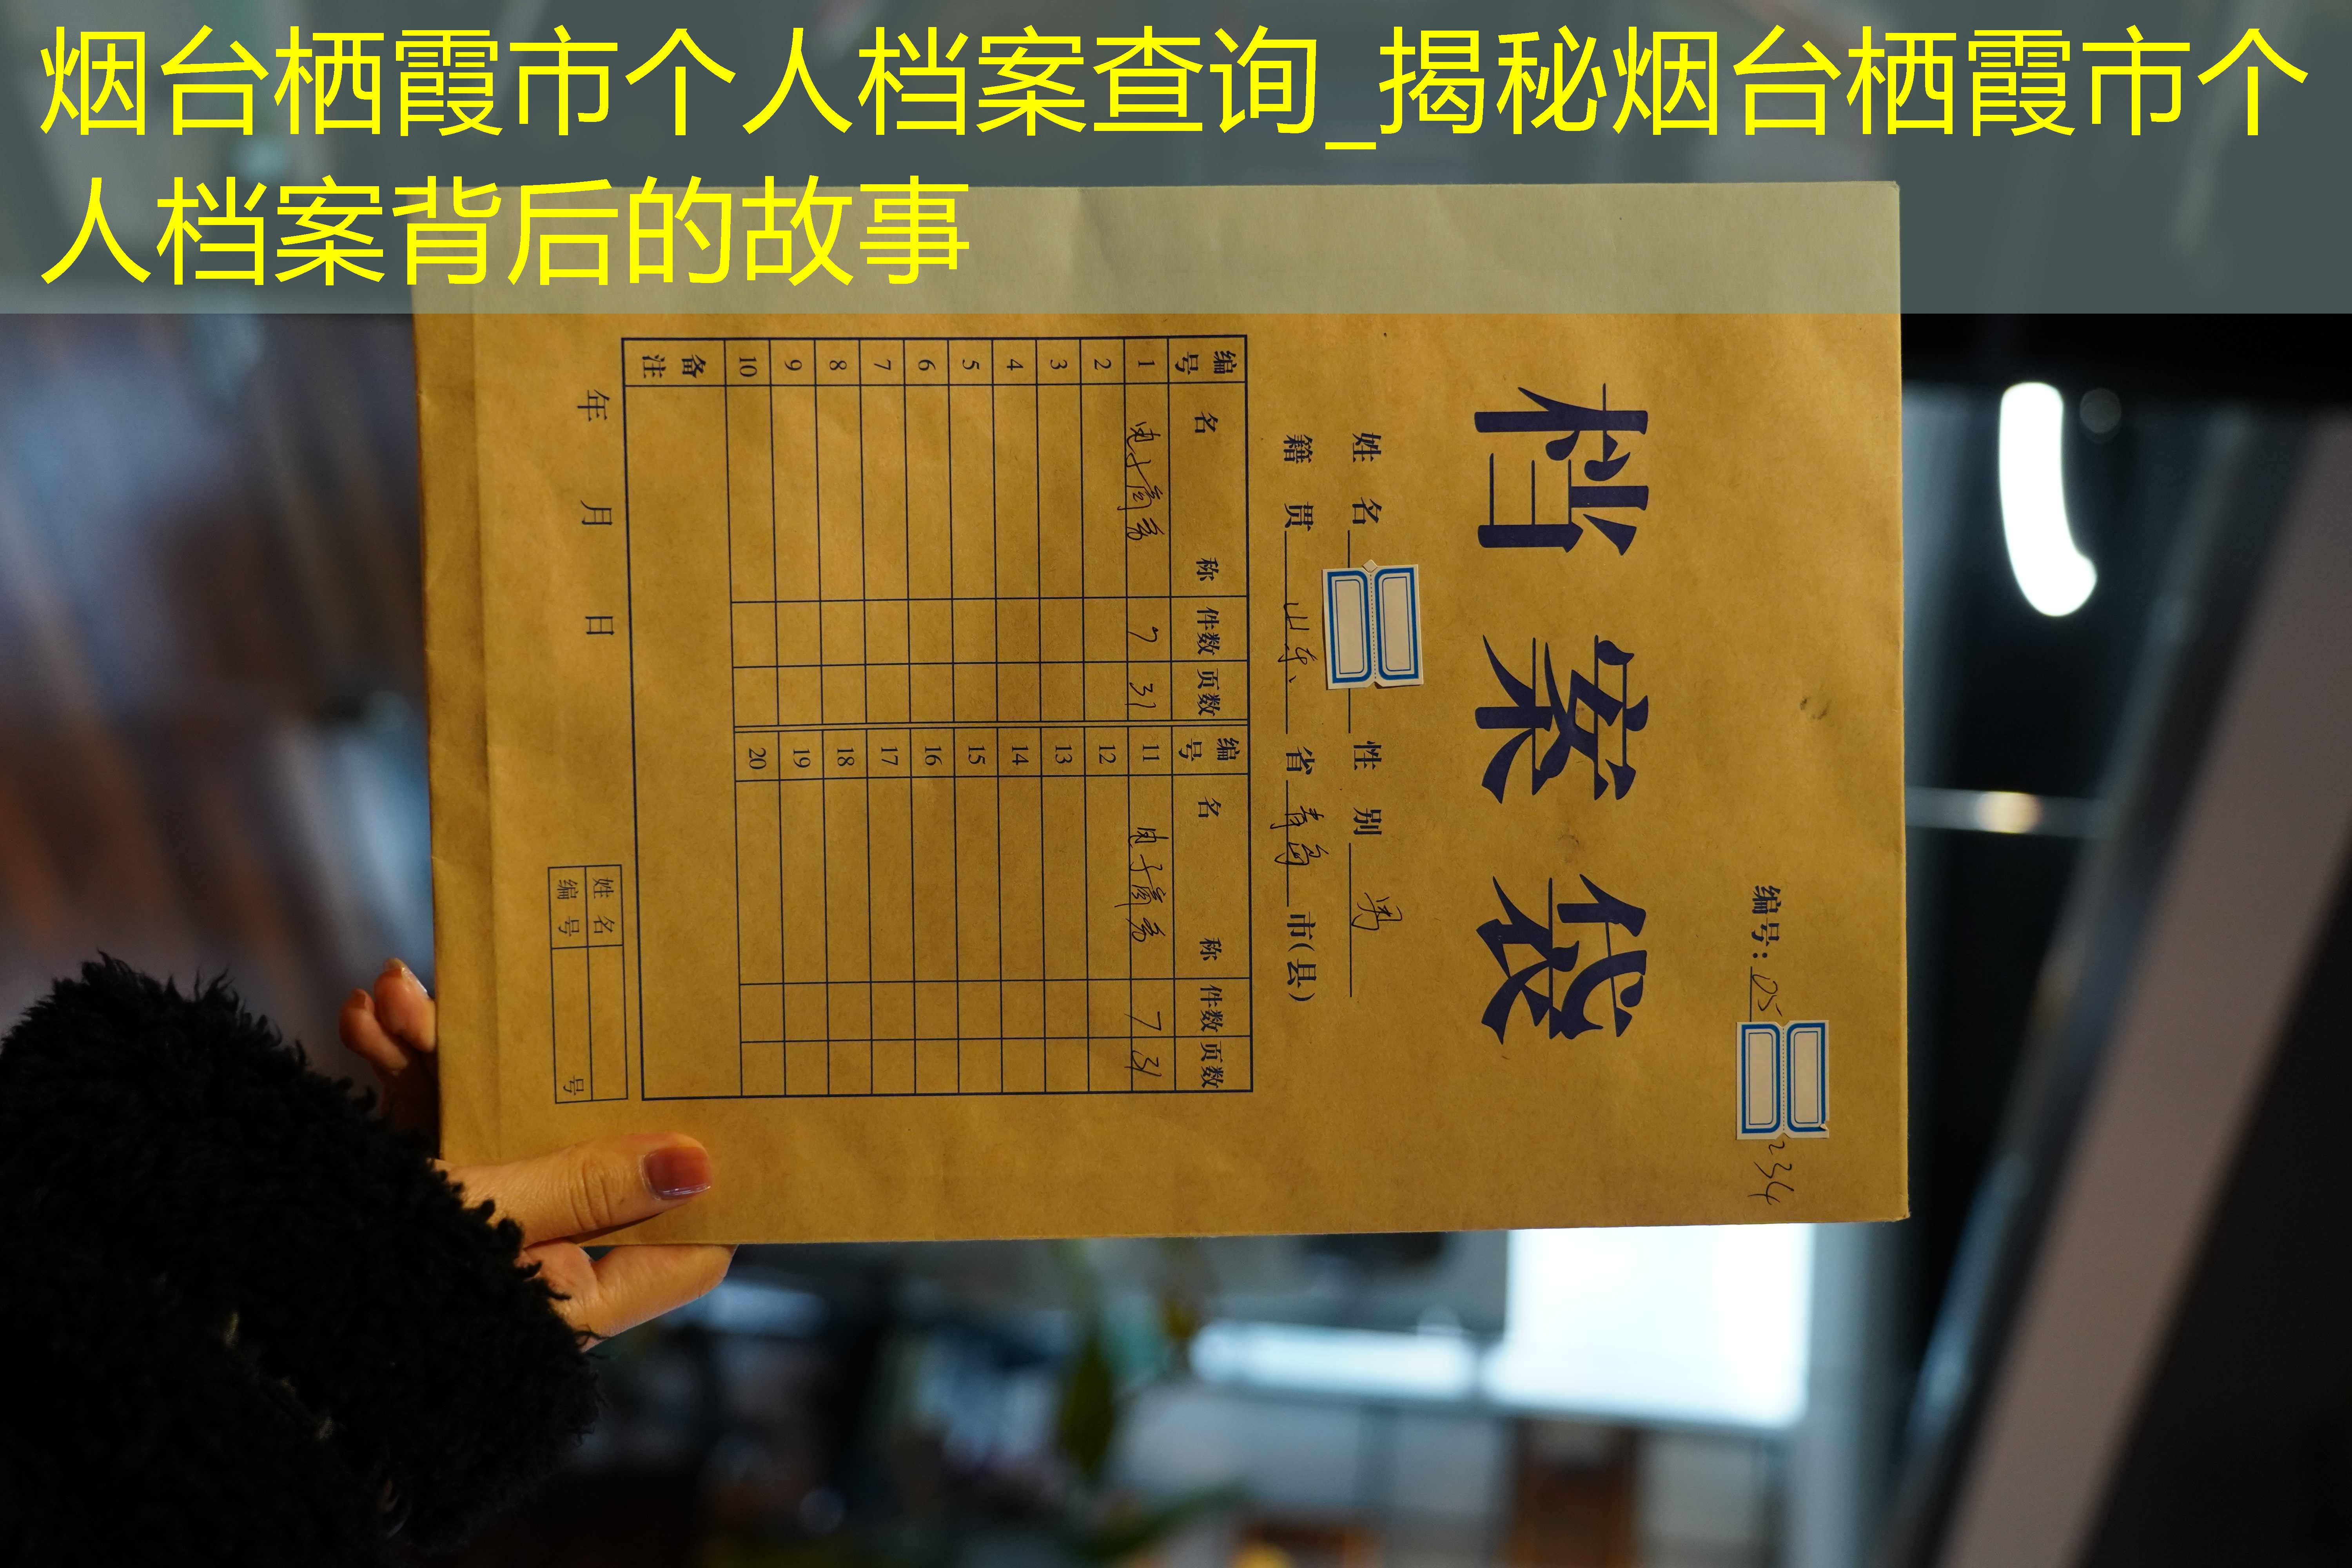 烟台栖霞市个人档案查询_揭秘烟台栖霞市个
人档案背后的故事
编号：05 234
档案袋
姓名 性别 男
籍贯 山东 省 青岛 市(县)
编号 名称 件数 页数 编号 名称 件数 页数
1 7 31 11 7 31
2 12
3 13
4 14
5 15
6 16
7 17
8 18
9 19
10 20
备注
年 月 日
姓名
编号 号